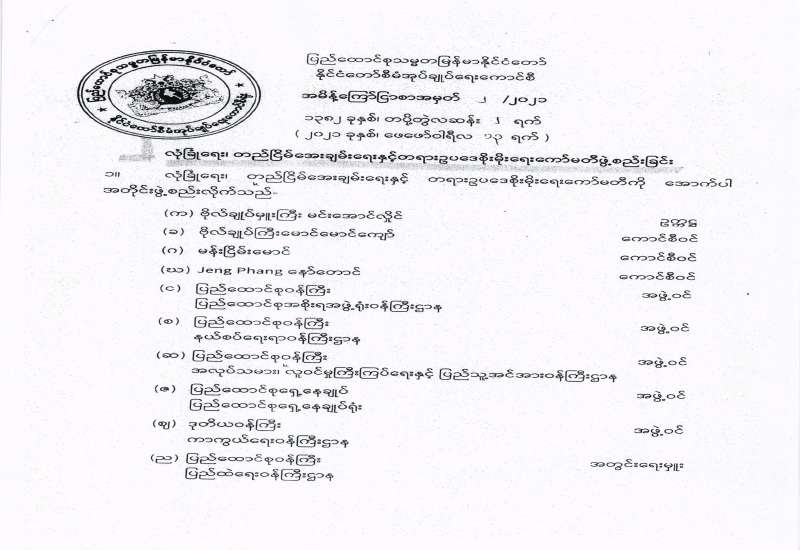 ပြည်ထောင်စုသမ္မတမြန်မာနိုင်ငံတော်
နိုင်ငံတော်စီမံအုပ်ချုပ်ရေးကောင်စီ
အမိန့်ကြော်ငြာစာအမှတ် ၂ /၂၀၂၁
၁၃၈၂ ခုနှစ်၊ တပို့တွဲလဆန်း ၂ ရက်
( ၂၀၂၁ ခုနှစ်၊ ဖေဖော်ဝါရီလ ၁၃ ရက် )
လုံခြုံရေး၊ တည်ငြိမ်အေးချမ်းရေးနှင့်တရားဥပဒေစိုးမိုးရေးကော်မတီဖွဲ့စည်းခြင်း
၁။ လုံခြုံရေး၊ တည်ငြိမ်အေးချမ်းရေးနှင့် တရားဥပဒေစိုးမိုးရေးကော်မတီကို အောက်ပါ
အတိုင်းဖွဲ့စည်းလိုက်သည်-
(က) ဗိုလ်ချုပ်မှူးကြီး မင်းအောင်လှိုင် ဥက္ကဋ္ဌ
(ခ) ဗိုလ်ချုပ်ကြီးမောင်မောင်ကျော် ကောင်စီဝင်
(ဂ) မန်းငြိမ်းမောင် ကောင်စီဝင်
(ဃ) Jeng Phang နော်တောင် ကောင်စီဝင်
(င) ပြည်ထောင်စုဝန်ကြီး အဖွဲ့ဝင်
ပြည်ထောင်စုအစိုးရအဖွဲ့ရုံးဝန်ကြီးဌာန
(စ) ပြည်ထောင်စုဝန်ကြီး အဖွဲ့ဝင်
နယ်စပ်ရေးရာဝန်ကြီးဌာန
(ဆ) ပြည်ထောင်စုဝန်ကြီး အဖွဲ့ဝင်
အလုပ်သမား၊ လူဝင်မှုကြီးကြပ်ရေးနှင့် ပြည်သူ့အင်အားဝန်ကြီးဌာန
(ဇ) ပြည်ထောင်စုရှေ့နေချုပ် အဖွဲ့ဝင်
ပြည်ထောင်စုရှေ့နေချုပ်ရုံး
(ဈ) ဒုတိယဝန်ကြီး အဖွဲ့ဝင်
ကာကွယ်ရေးဝန်ကြီးဌာန
(ည) ပြည်ထောင်စုဝန်ကြီး အတွင်းရေးမှူး
ပြည်ထဲရေးဝန်ကြီးဌာန